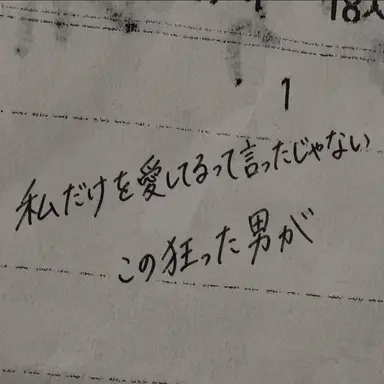 18
1
私だけを愛してるって言ったじゃない
この狂った男が